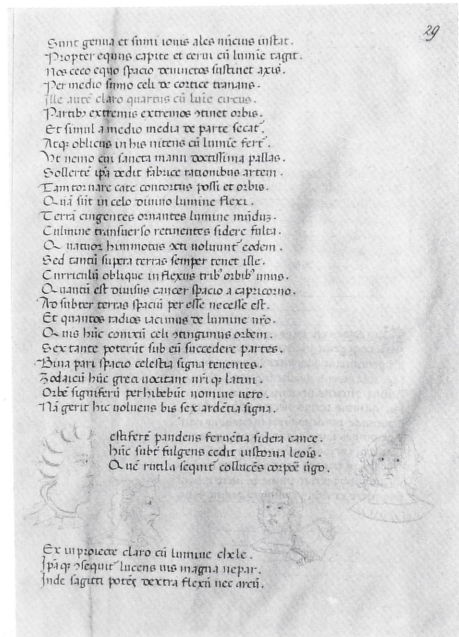 29
Sunt genua et sumi iouis ales nūcius instat.
Propter equus capite et cerui cū lumīe tagit.
Nos ceco equo spacio deuinctos sustinet axis.
Per medio sūmo celi de cortice tranans.
Ille autē claro quartus cū luīe circus.
Partibꝫ extremis extremos ↄtinet orbis.
Et simul a medio media de parte secat.
Atqꝫ oblicus in his nitens cū lumīe fert.
Vt nemo cui sancta manu doctissima pallas.
Sollertē ipā dedit fabrice rationibus artem.
Tam tornare cate contortos possi et orbis.
Quā sūt in celo diuino lumine flexi.
Terrā cingentes ornantes lumine mūdūꝫ.
Culmine transuerso retinentes sidere fulta.
Quatuor hi motus uoluunt eodem.
Sed tantū supera terras semper tenet ille.
Curriculū oblique in flexus tribꝰ orbibꝰ unus.
Quantū est diuisus cancer spacio a capricorno.
Ac subter terras spaciū per esse necesse est.
Et quantos radios iacimus de lumine nr̄o.
Quis hūc conuexū celi ↄtingimus orbem.
Sex tante poterūt sub eū succedere partes.
Bina pari spacio celestia signa tenentes.
Zodaicū hūc greci uocitant nr̄i qꝫ latini.
Orbē signiferū perhibebūt nomine uero.
Nā gerit hic uoluens bis sex ardētia signa.
estiferꝰ pandens feruētia sidera cance.
hūc subtꝰ fulgens cedit uis torua leois.
Quē rutila sequit collucēs corpoē ūgo.
Ex in proiecte claro cū lumine chele.
Ipā qꝫ ↄsequit lucens uis magna nepar.
Inde sagitti potēs dextra flexū nec arcū.